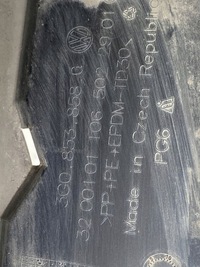 3G0 853 858 Q
32.001 01 106 502 29:01
>PP+PE+EPDM-TD30<
Made in Czech Republic
PG6